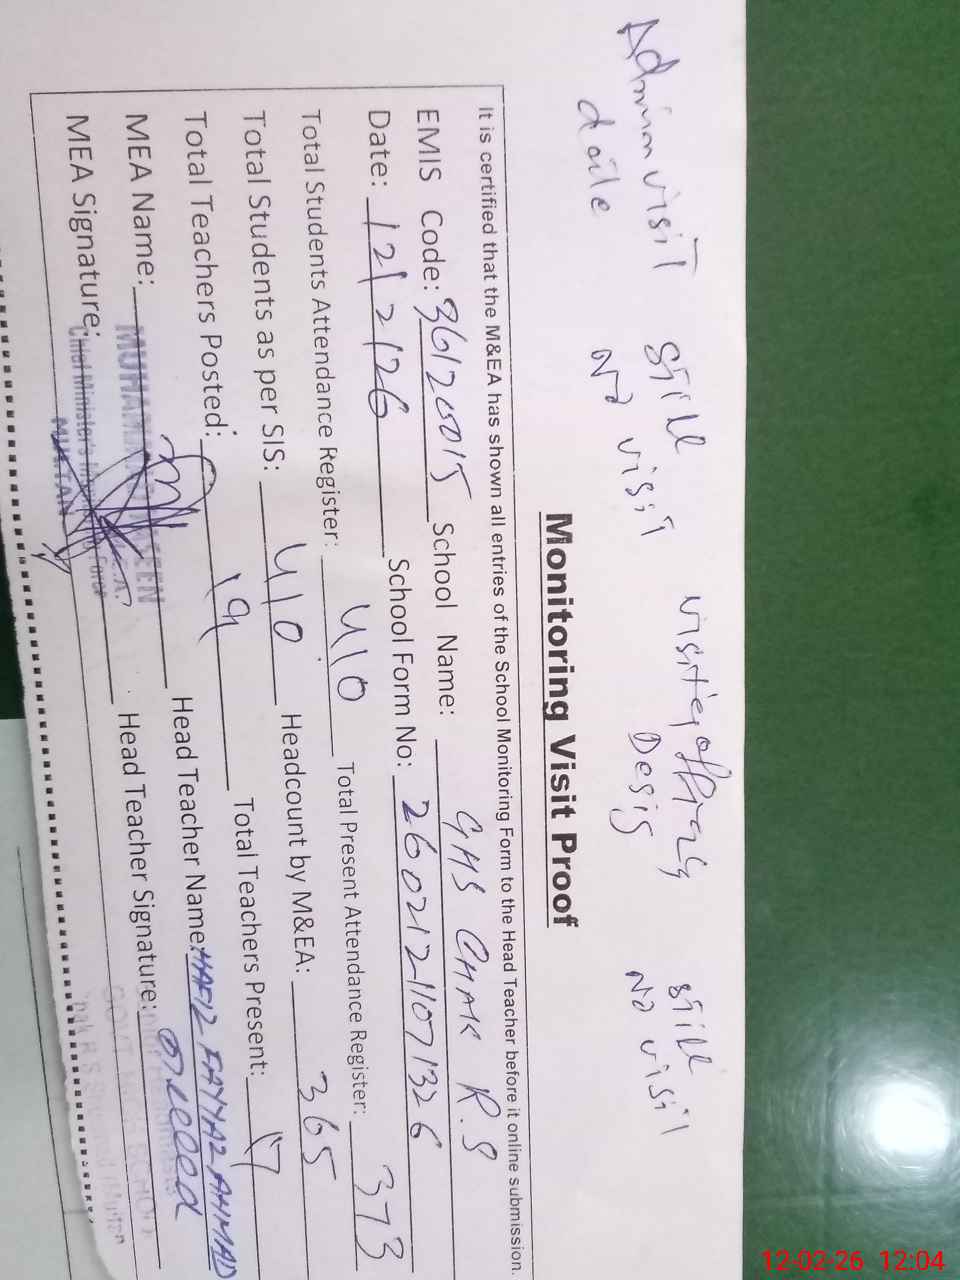 Admin visit still visiting officers still
daile No visit Desig No visit
Monitoring Visit Proof
It is certified that the M&EA has shown all entries of the School Monitoring Form to the Head Teacher before it online submission.
EMIS Code: 36120015 School Name: GHS CHAK R.S
Date: 12/2/26 School Form No: 26021211071326
Total Students Attendance Register: 410 Total Present Attendance Register: 373
Total Students as per SIS: 410 Headcount by M&EA: 365
Total Teachers Posted: 19 Total Teachers Present: 17
MEA Name: MUHAMMAD Head Teacher Name: HAFIZ FAYYAZ AHMAD
MEA Signature: Head Teacher Signature:
Chief Minister's Monitoring Force
MULTAN
12-02-26 12:04